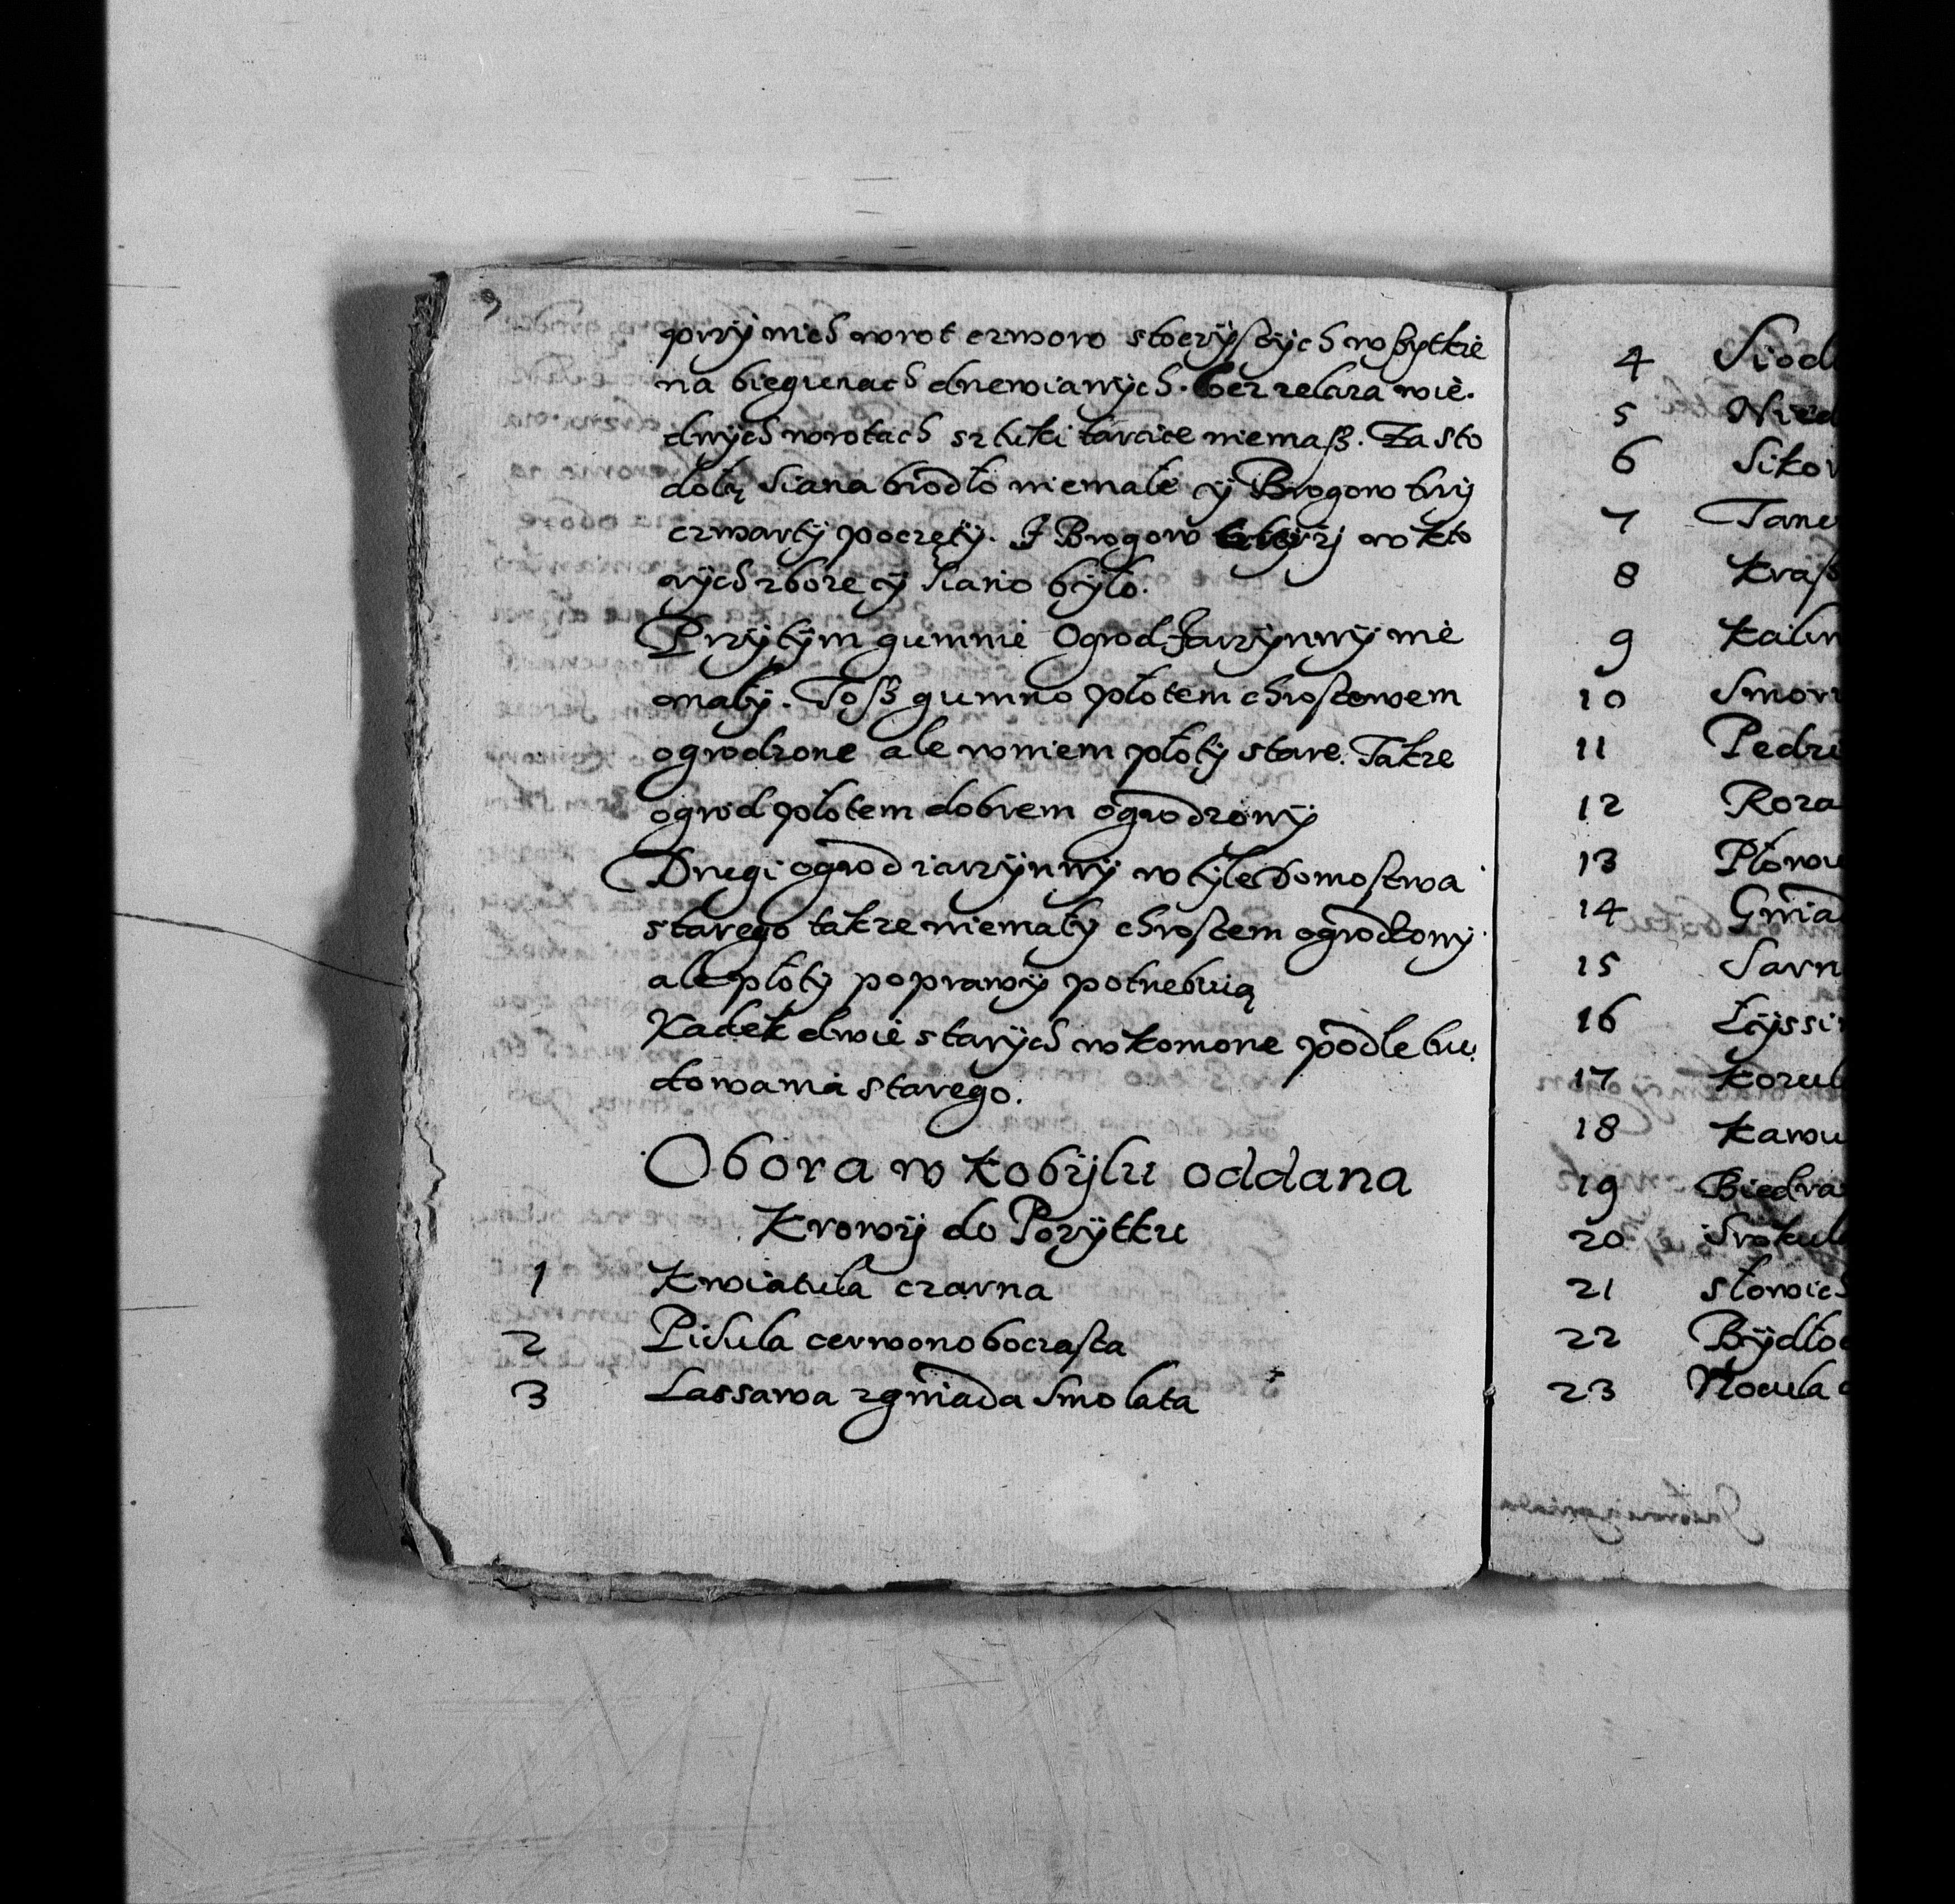 przy nich wrot czworo stoczystych wszytkie
na biegunach drzewianych. bez zelaza w ie.
dnych wrotach sztuki tarcice niemasz. Za sto
dołą siana brodło niemałe y Brogow trzy
czwarty poczęty. I Brogow trzy w kto
rych zboze y siano było.
Przy tym gumnie Ogrod Jarzynny nie
mały. Tosz gumno płotem chrostowem
ogrodzone ale w niem płoty stare. Takze
ogrod płotem dobrem ogrodzony
Drugi ogrod iarzynny w tyle Domostwa
starego takze niemały chrostem ogrodzony
ale płoty poprawy potrzebuią
Kadek dwie starych w komorze podle bu
dowania starego.
Obora w Kobylu oddana
Krowy do Pozytku
1 Kwiatula czarna
2 Pisula cerwono boczasta
3 Lassawa zgniada Smolata
4 Siod
5 Nied
6 Sikor
7 Tane
8 Kras
9 Kalin
10 Smor
11 Pedz
12 Roza
13 Płow
14 Gniad
15 Sarn
16 Łyssi
17 Kozul
18 Kawu
19 Biedra
20 Srokul
21 słowic
22 Bydło
23 Nocula